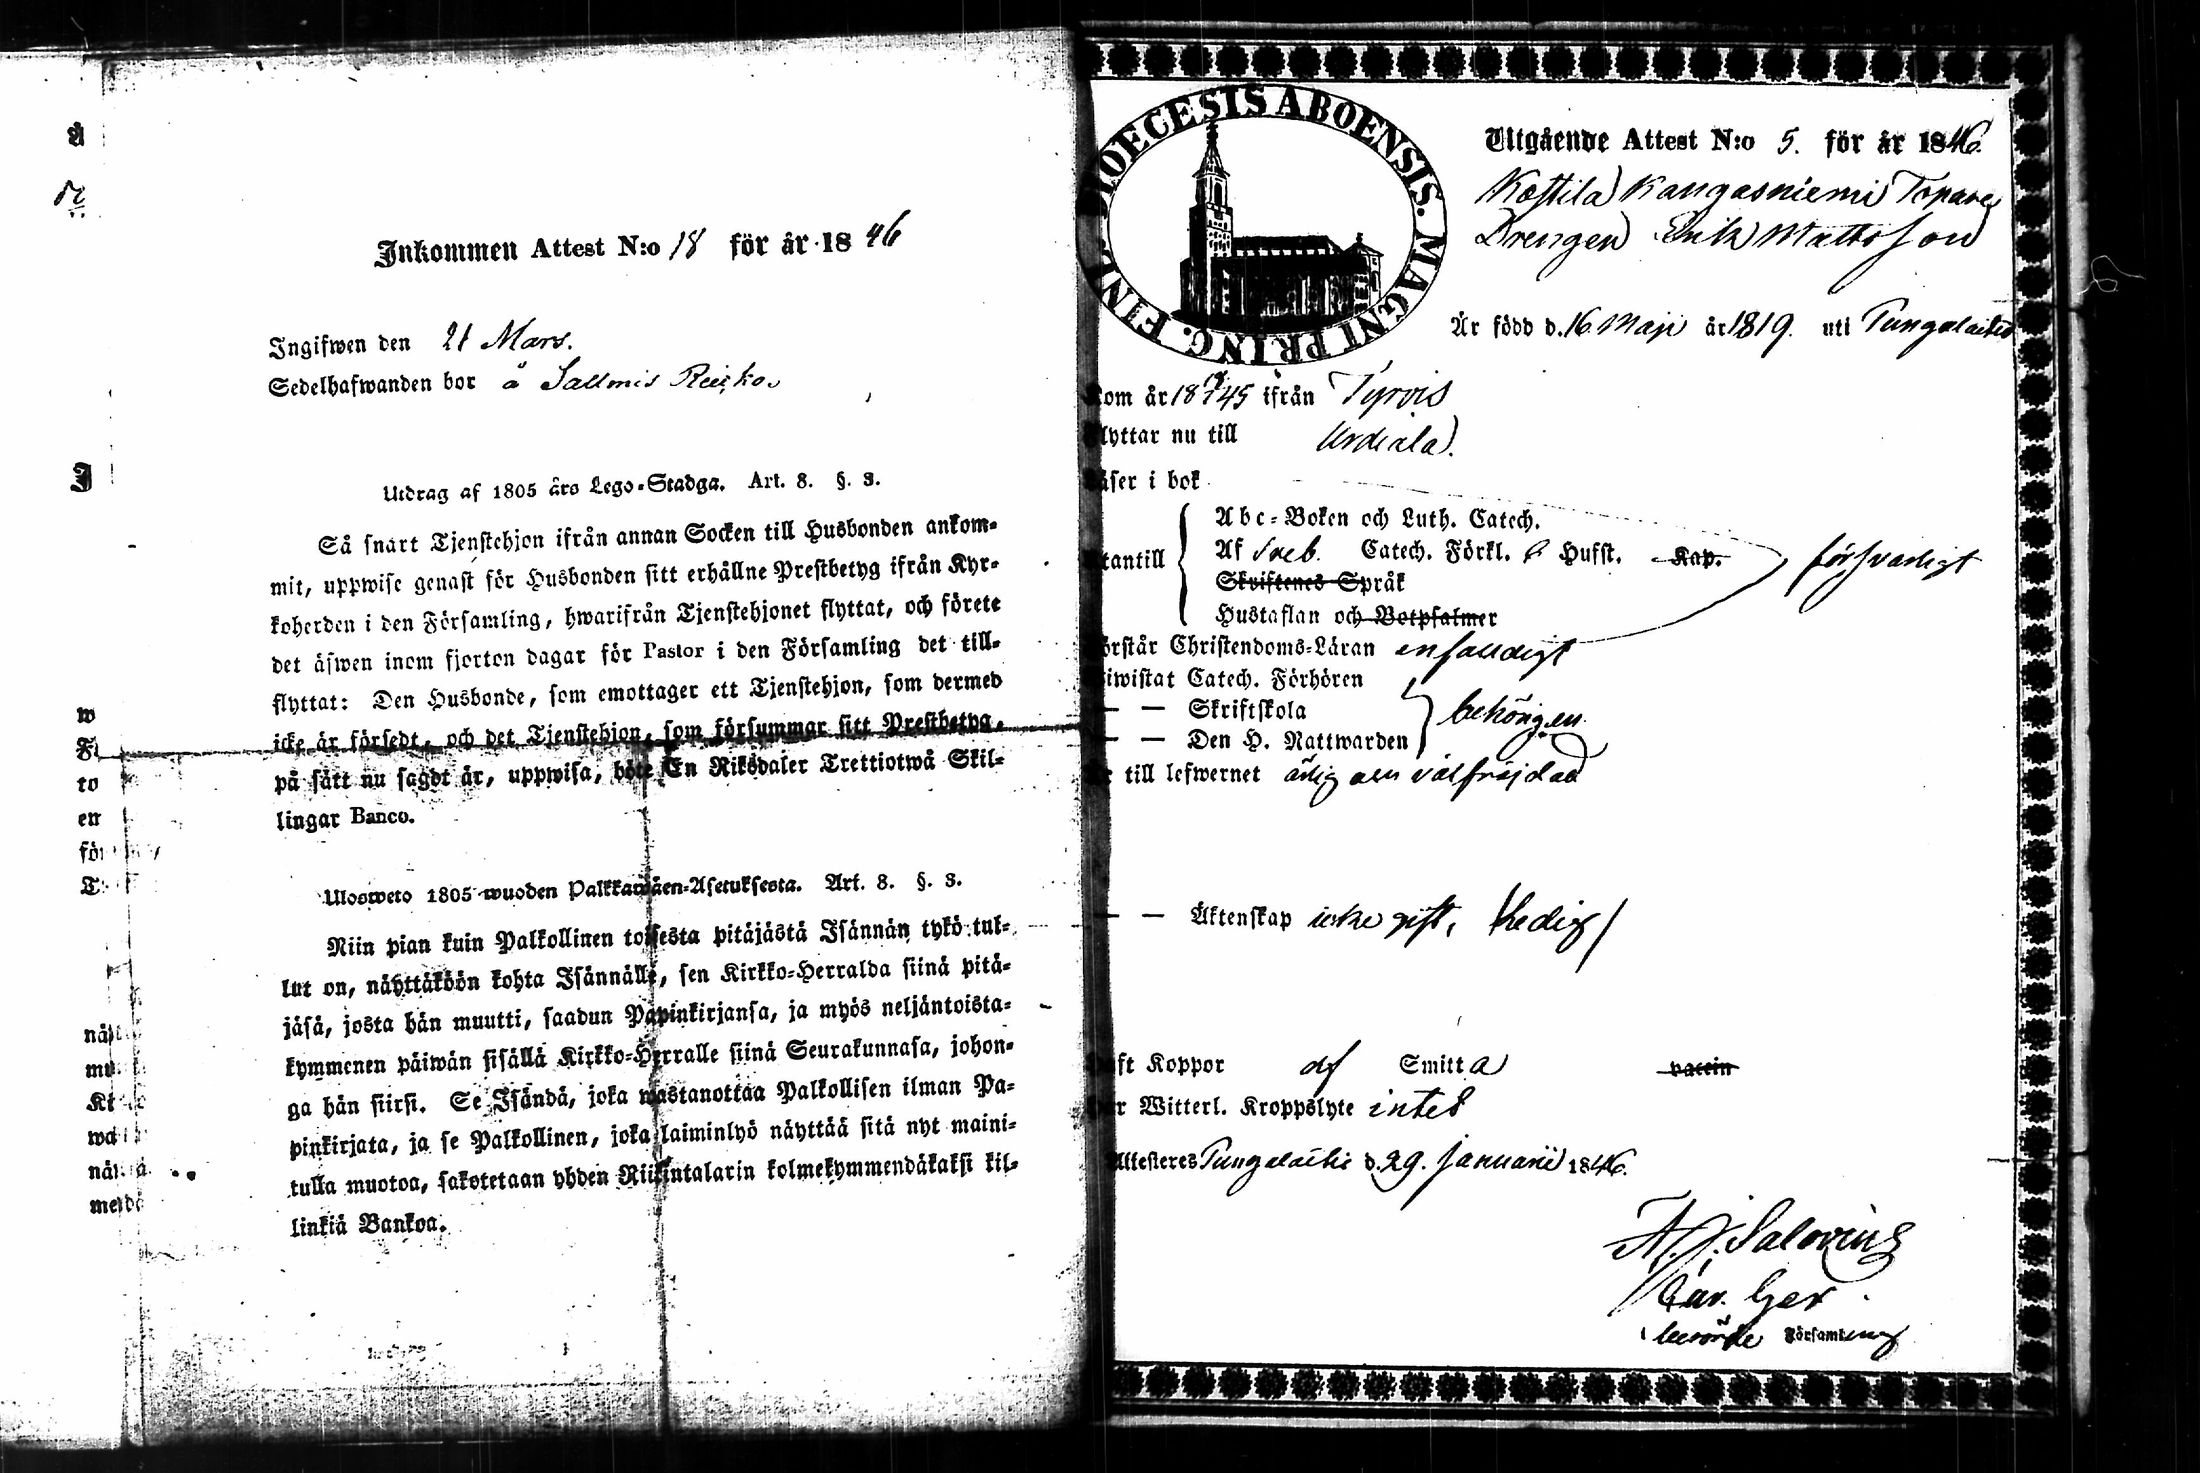 Inkommen Attest N:o 18 för år 1846
Ingifwen den 21 Mars.
Sedelhafwanden bor å Sallmis
Utdrag af 1805 års Lego-Stadga. Art. 8. §. 3.
Så snart Tjenstehjon ifrån annan Socken till Husbonden ankom-
mit, uppwise genast för Husbonden sitt erhållne Prestbetyg ifrån Kyr-
koherden i den Församling, hwarifrån Tjenstehjonet flyttat, och förete
det äfwen inom fjorton dagar för Pastor i den Församling det till-
flyttat: Den Husbonde, som emottager ett Tjenstehjon, som dermed
icke är försedt, och det Tjenstehjon, som försummar sitt Prestbetyg,
på sätt nu sagdt är, uppwisa, böte En Riksdaler Trettiotwå Skil-
lingar Banco.
Ulosweto 1805 wuoden Palkkawäen-Asetuksesta. Art. 8. §. 3.
Niin pian kuin Palkollinen toisesta pitäjästä Isännän tykö tul-
lut on, näyttäköön kohta Isännälle, sen Kirkko-Herralda siinä pitä-
jäsä, josta hän muutti, saadun Papinkirjansa, ja myös neljäntoista-
kymmenen päiwän sisällä Kirkko-Herralle siinä Seurakunnasa, johon-
ga hän siirsi. Se Isändä, joka wastanottaa Palkollisen ilman Pa-
pinkirjata, ja se Palkollinen, joka laiminlyö näyttää sitä nyt maini-
tulla muotoa, sakotetaan yhden Riikintalarin kolmekymmendäkaksi kil-
linkiä Bankoa.
DIOECESIS ABOENSIS. MAGNI PRINC. FINL.
Utgående Attest N:o 5. för år 1846.
Kæstila Kangasniemi Torpare
Drengen Erik Mattsson
Är född d. 16 Maji år 1819. uti Pungalaitio
kom år 1845 ifrån Tyrvis
flyttar nu till Urdiala.
läser i bok
Abc-Boken och Luth. Catech.
utantill Af Sveb. Catech. Förkl. 6 Hufst. Kap. försvarligt
Skriftenes Språk
Hustaflan och Botpsalmer
förstår Christendoms-Läran enfaldigt
biwistat Catech. Förhören
— — Skriftskola behörigen
— — Den H. Nattwarden
är till lefwernet ärlig och välfrejdad
— — Äktenskap icke gift, /Ledig/
haft Koppor af Smitta vaccin
har Witterl. Kroppslyte intet
Attesteras Pungalaitio d. 29. Januarii 1846.
A. J. Salovius
berörde Församling